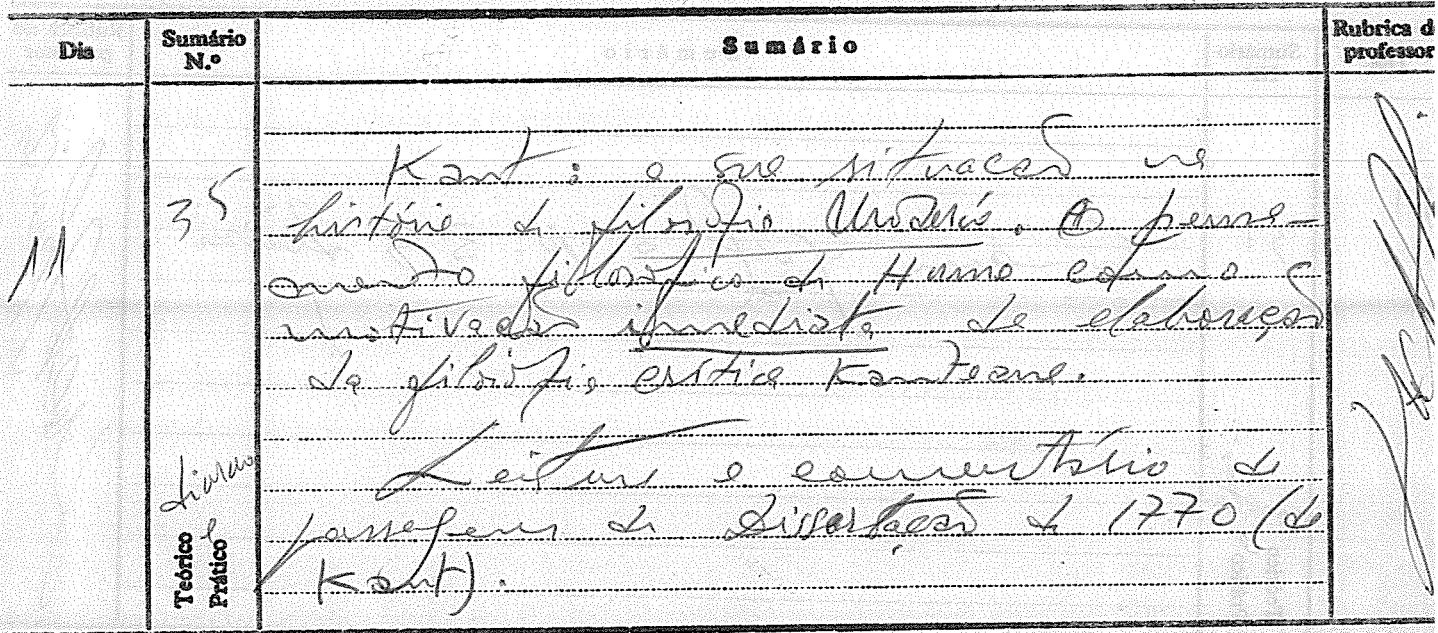 Dia
Sumário N.º
Sumário
Rubrica do professor
11
35
Kant: a sua situação na
história da filosofia Moderna. O pensa-
mento filosófico de Hume como a
motivação imediata da elaboração
da filosofia crítica Kanteana.
Leitura e comentário de
passagens da Dissertação de 1770 (de
Kant).
Teórico
e
Prático